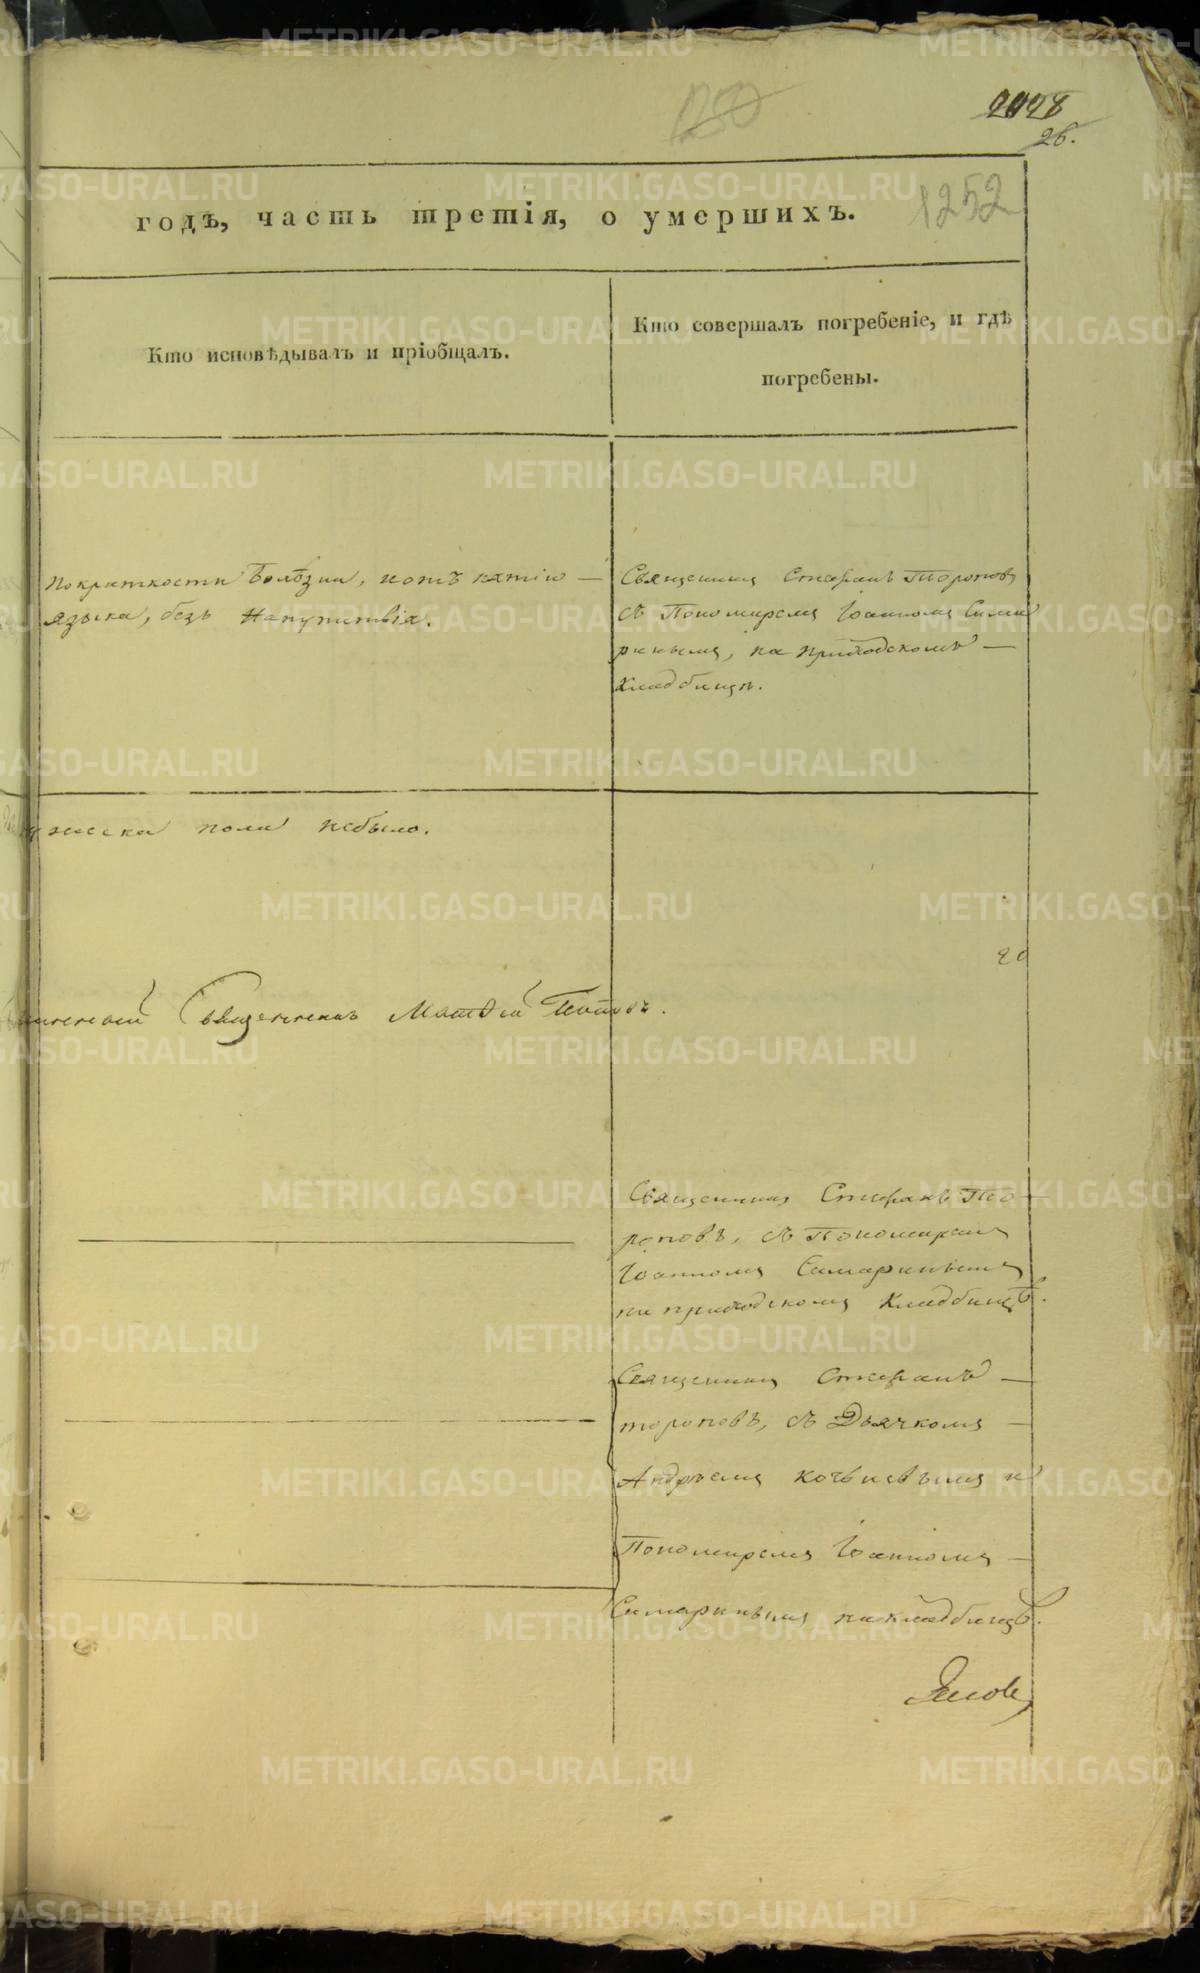 2428
26.
1252
годъ, часть третія, о умершихъ.
Кто исповѣдывалъ и пріобщалъ.
Кто совершалъ погребеніе, и гдѣ
погребены.
по краткости болѣзни,
языка, безъ напутствія.
Священникъ Стефанъ Торопов
съ Пономаремъ Іоанномъ Сима
ринымъ, на приходскомъ —
кладбищѣ.
пола небыло.
20
Священникъ Матѳій Поповъ.
Священникъ Стефанъ То-
роповъ, съ Пономаремъ
Іоанномъ Симаринымъ
на приходскомъ кладбищѣ.
Священникъ Стефанъ —
тороповъ, съ Дьячкомъ —
Андреемъ и
Пономаремъ Іоанномъ —
Симаринымъ на кладбищѣ.
METRIKI.GASO-URAL.RU